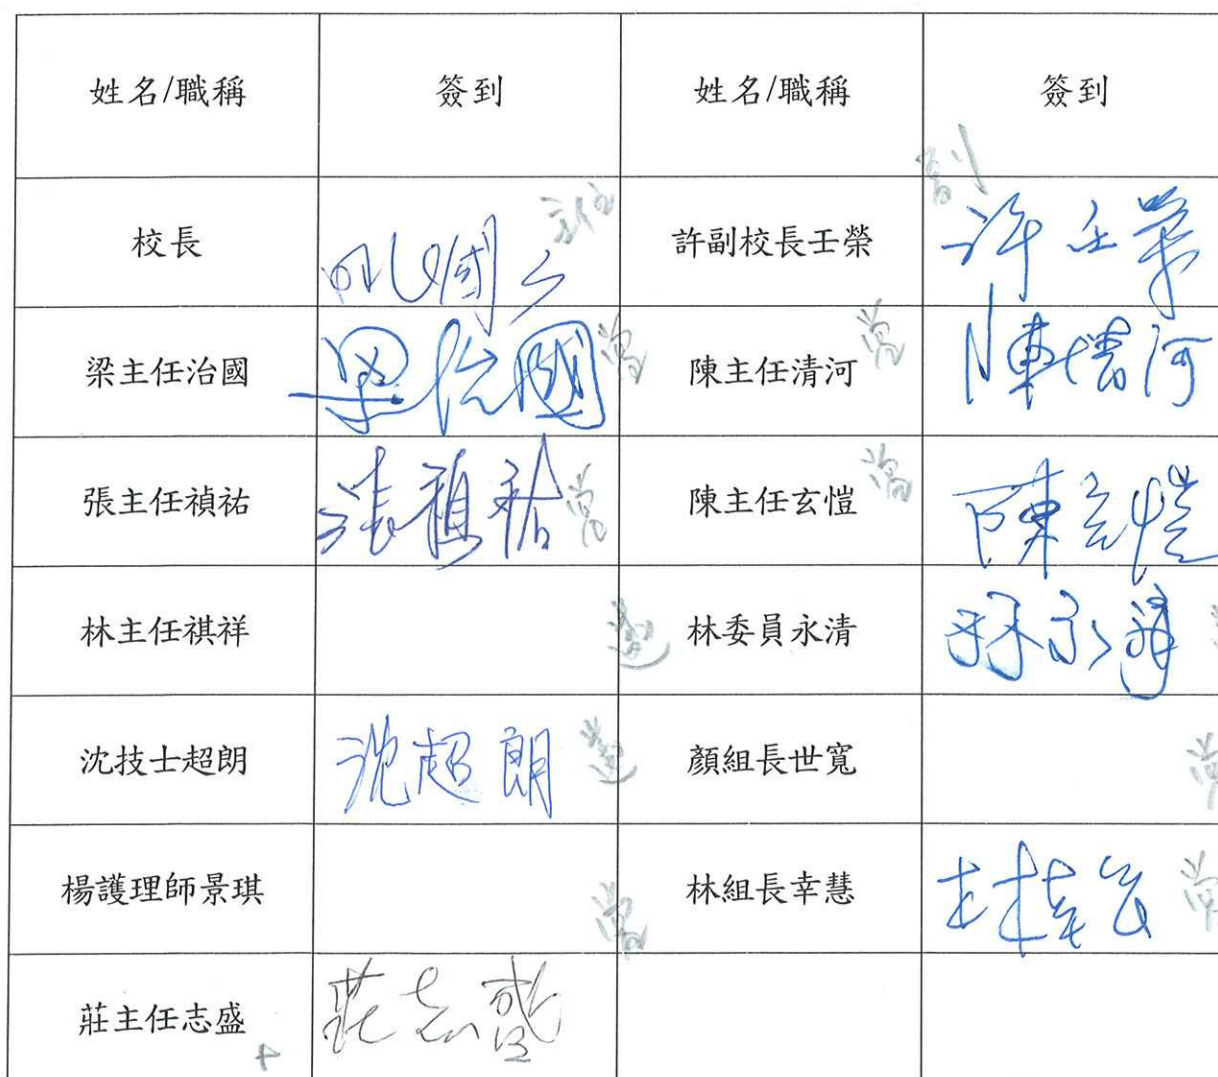 姓名/職稱 簽到 姓名/職稱 簽到
副
主任
校長 許副校長壬榮 許壬榮
梁主任治國 梁治國 陳主任清河 陳清河
張主任禎祐 張禎祐 陳主任玄愷 陳玄愷
林主任祺祥 林委員永清 林永清
沈技士超朗 沈超朗 顏組長世寬
楊護理師景琪 林組長幸慧 林幸慧
莊主任志盛 莊志盛